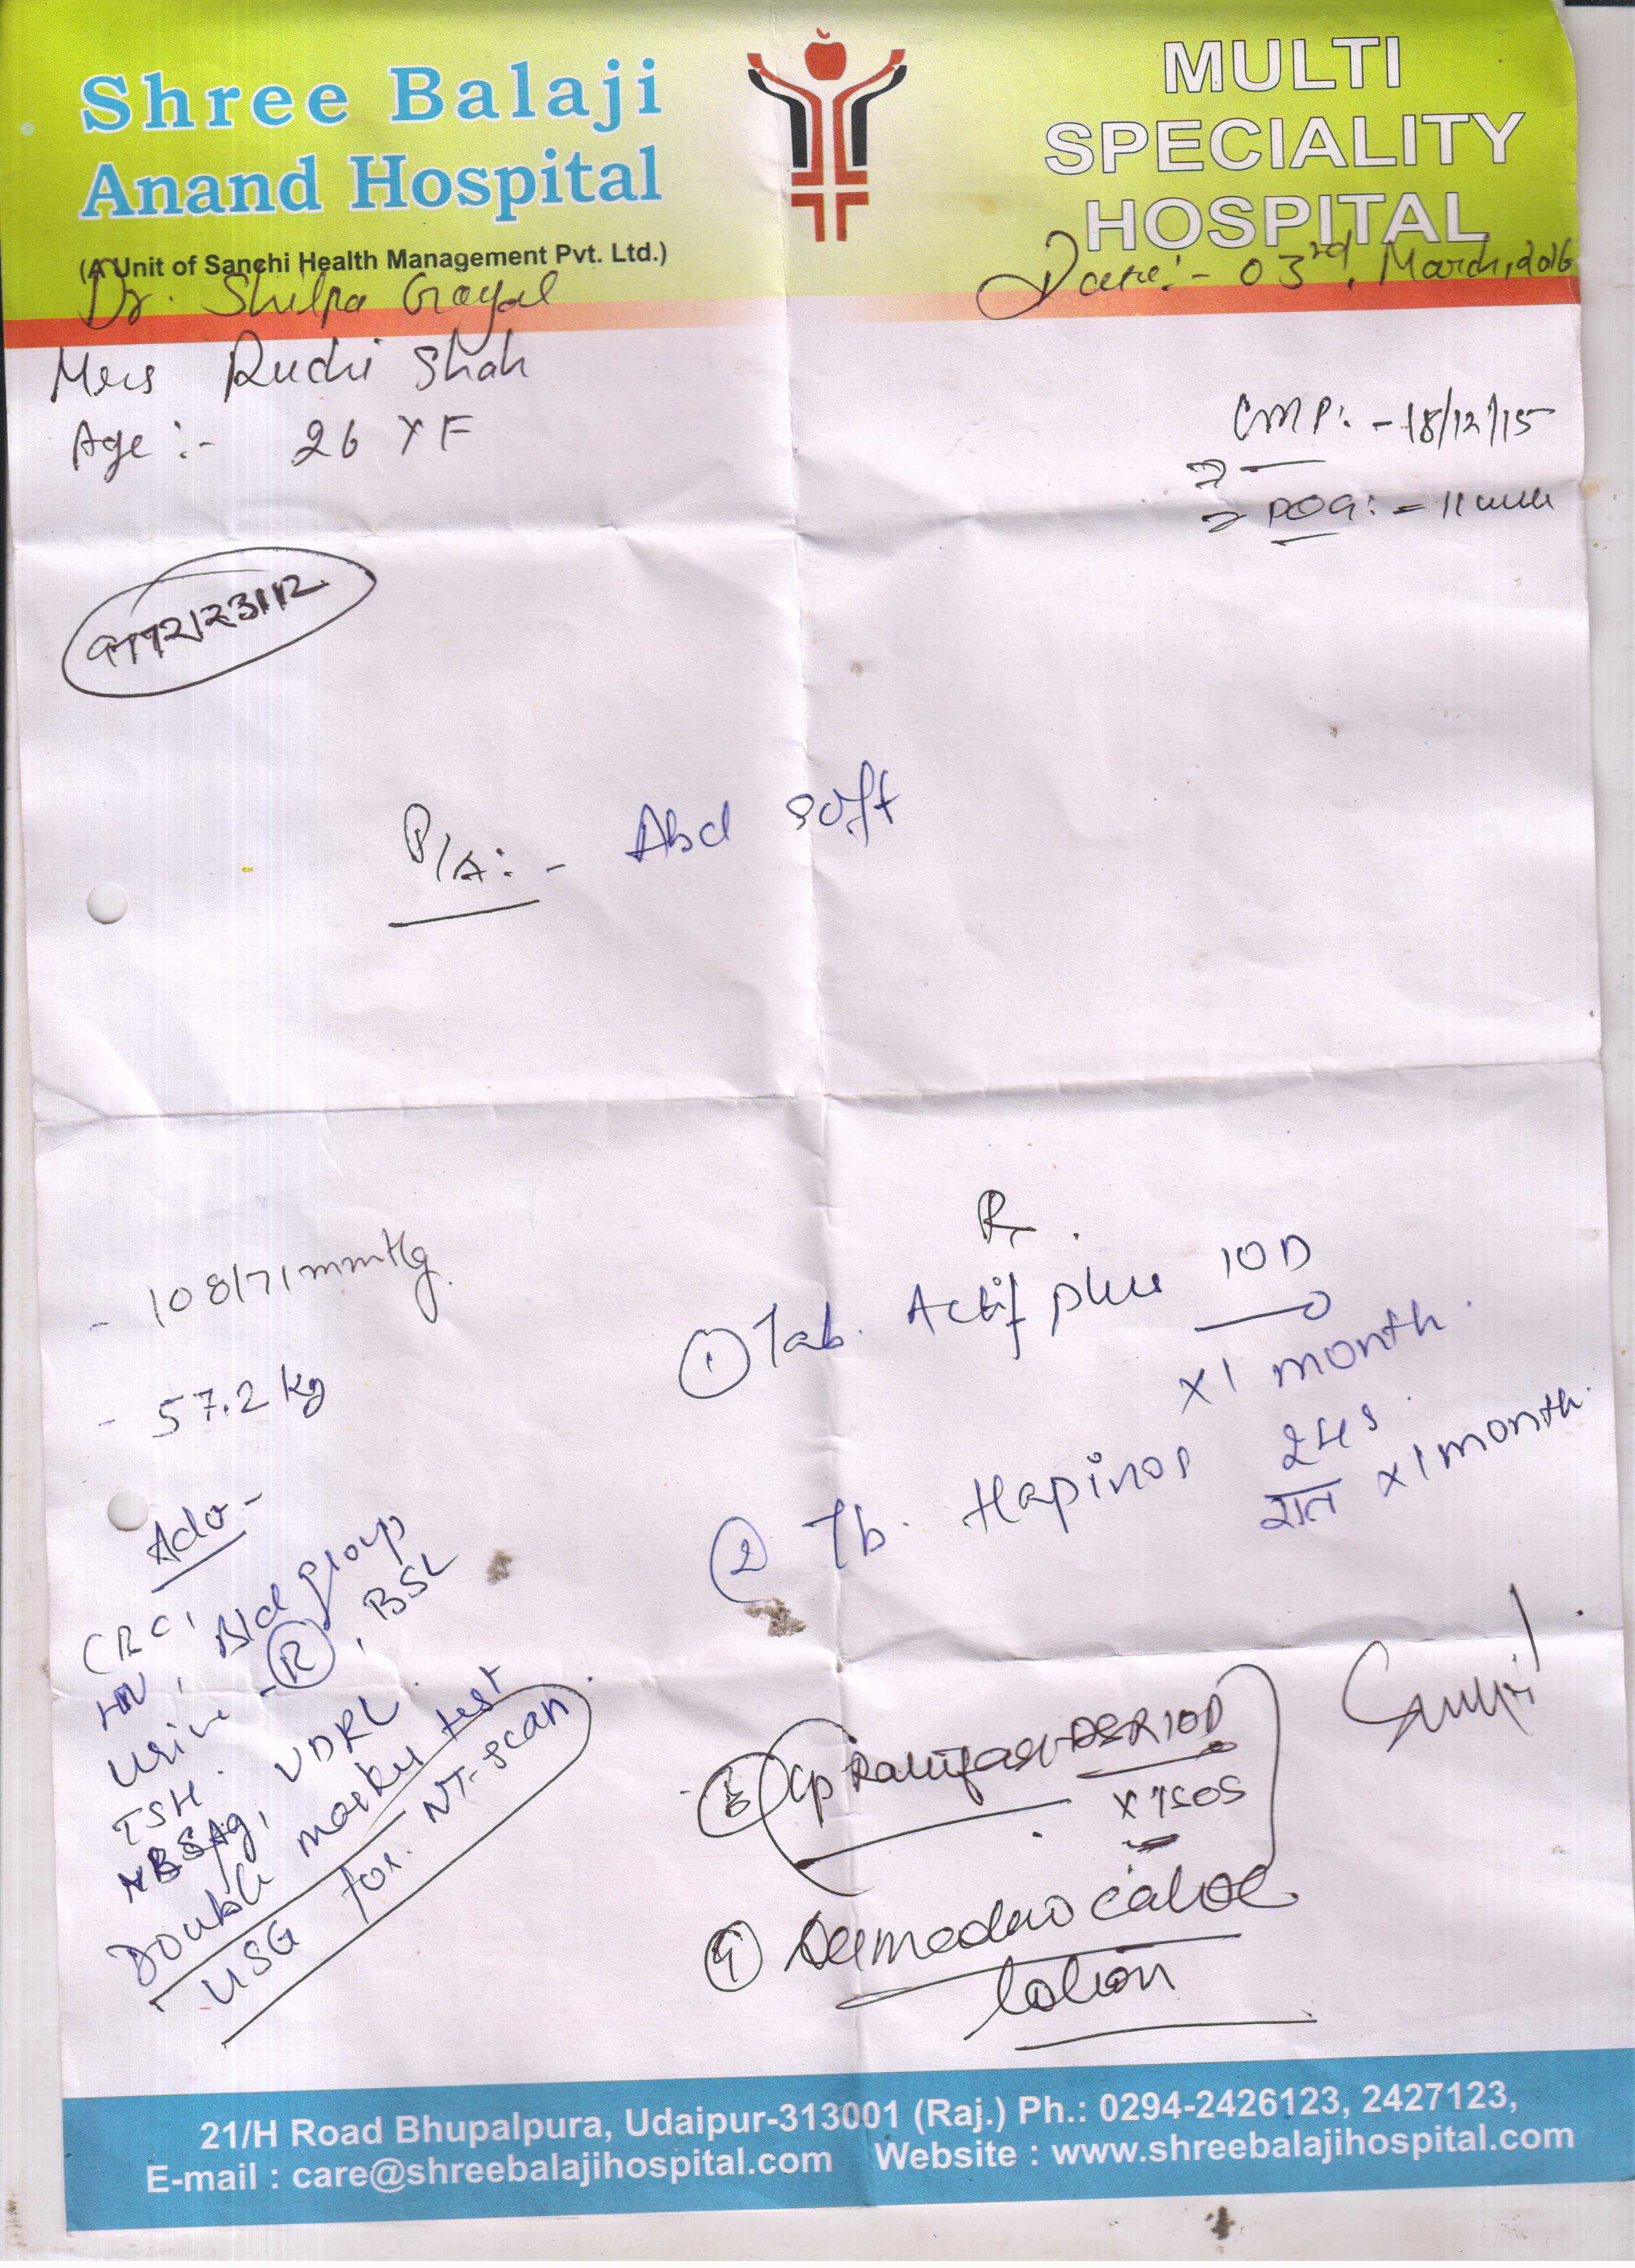 Shree Balaji
Anand Hospital
(A Unit of Sanchi Health Management Pvt. Ltd.)
MULTI
SPECIALITY
HOSPITAL
Dr. Shilpa Goyal
Date:- 03rd, March, 2016
Mrs Ruchi Shah
Age:- 26 Y F
LMP: - 18/12/15
POG: = 11 week
9772123112
P/A:- Abd soft
- 108/71 mmHg
- 57.2 kg
Adv -
CBC,
HIV, Bld group
Urine - R, BSL
TSH. VDRL
HBSAg,
Double marker test
USG for NT-scan
Rx.
① Tab. Actif plus 10D
x 1 month.
② Tb. Hapinos 24s
रात x 1 month.
③ Cp DSR 10D
x SOS
④ calol
lotion
21/H Road Bhupalpura, Udaipur-313001 (Raj.) Ph.: 0294-2426123, 2427123,
E-mail : care@shreebalajihospital.com Website : www.shreebalajihospital.com